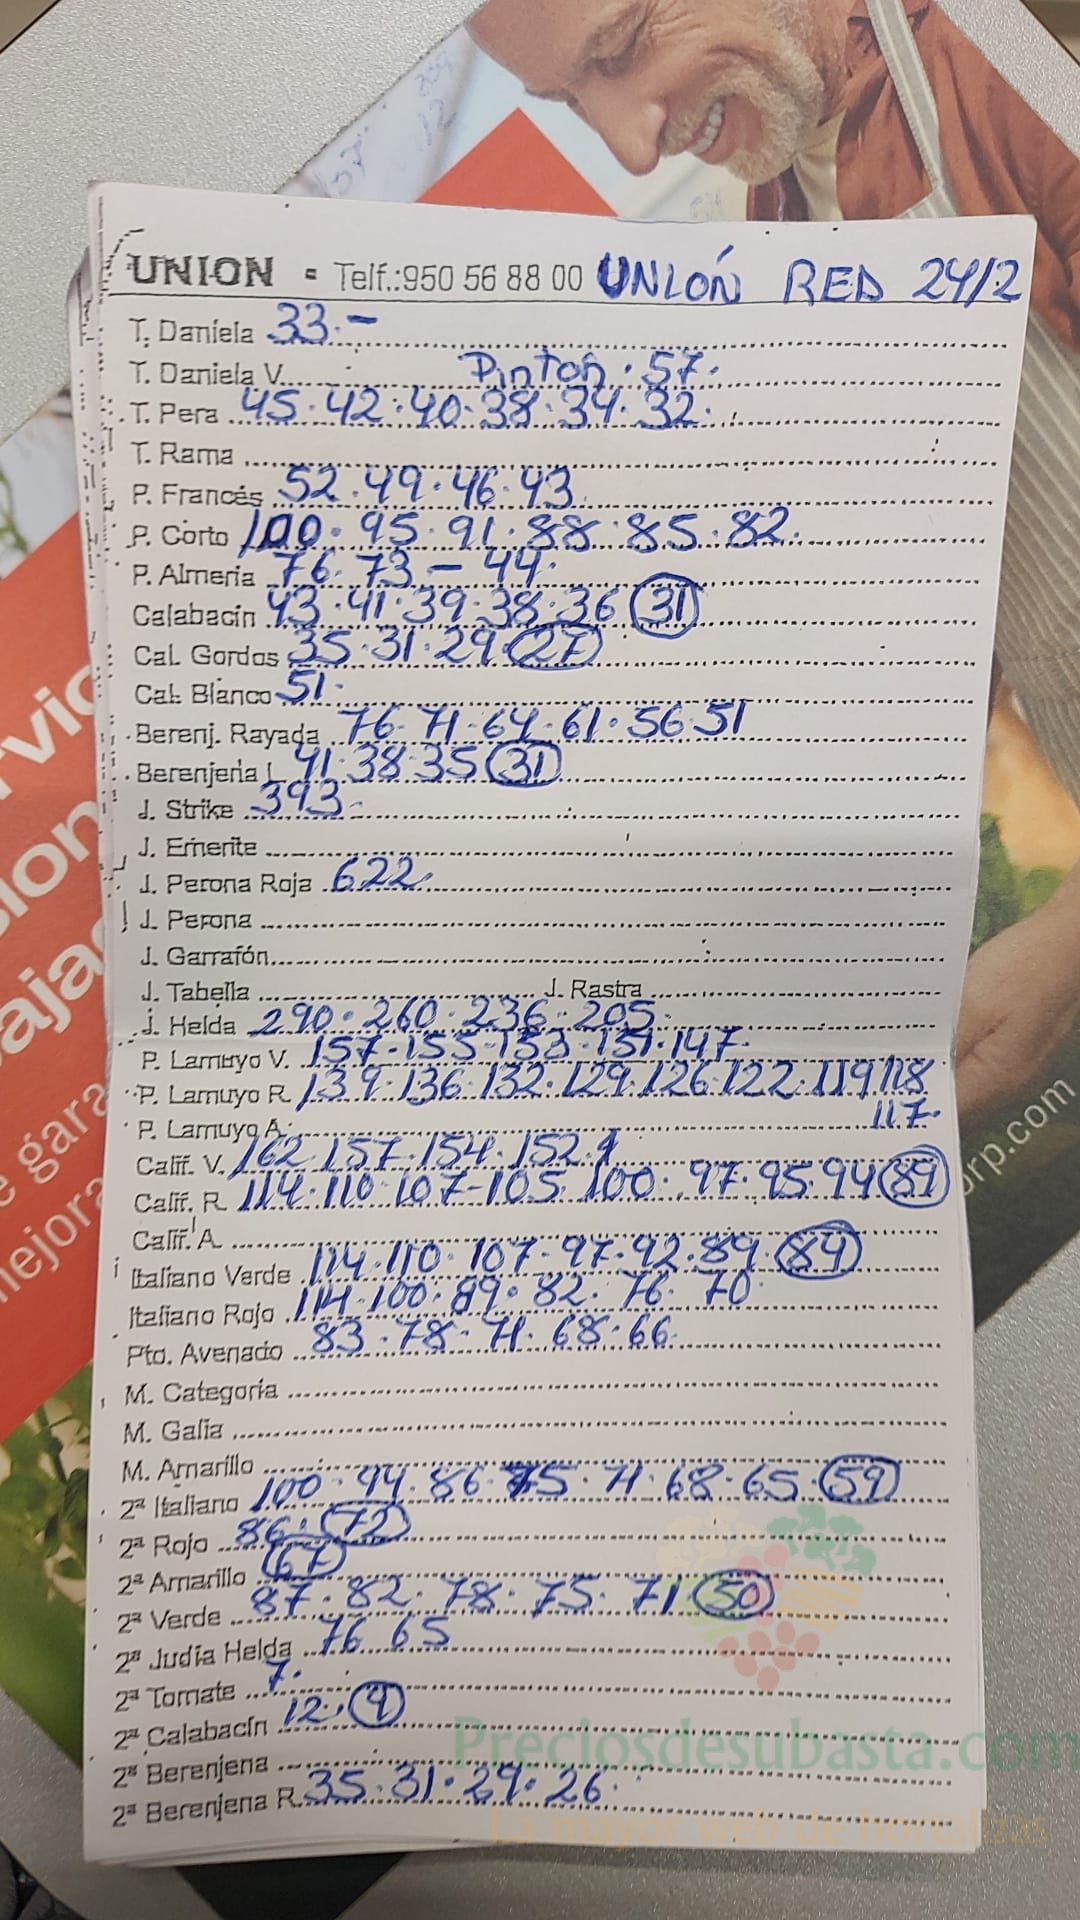 UNION - Telf.:950 56 88 00 UNIÓN RED 24/2
T. Daniela 33.-
T. Daniela V. Pintón. 57.
T. Pera 45. 42. 40. 38. 34. 32.
T. Rama
P. Francés 52. 49. 46. 43
P. Corto 100. 95. 91. 88. 85. 82.
P. Almeria 76. 73. - 44.
Calabacín 43. 41. 39. 38. 36 31
Cal. Gordos 35. 31. 29. 27
Cal. Blanco 51.
Berenj. Rayada 76. 71. 64. 61. 56. 51
Berenjena L. 41. 38. 35 31
J. Strike 393.
J. Emerite
J. Perona Roja 622.
J. Perona
J. Garrafón
J. Tabella J. Rastra
J. Helda 290. 260. 236. 205.
P. Lamuyo V. 157. 155. 153. 151. 147.
P. Lamuyo R. 139. 136. 132. 129. 126. 122. 119 118
117.
P. Lamuyo A.
Calif. V. 162 157. 154. 152.
Calif. R. 114. 110. 107-105. 100. 97. 95. 94 89
Calif. A
Italiano Verde 114. 110. 107. 97. 92. 89. 84
Italiano Rojo 114. 100. 89. 82. 76. 70
Pto. Avenado 83. 78. 71. 68. 66.
M. Categoria
M. Galia
M. Amarillo
2ª Italiano 100. 94. 86. 75. 71. 68. 65. 59
2ª Rojo 86. 72
2ª Amarillo 67
2ª Verde 87. 82. 78. 75. 71 50
2ª Judía Helda 76 65
2ª Tomate 7.
2ª Calabacín 12. 9
2ª Berenjena
2ª Berenjena R. 35. 31. 29. 26.
Preciosdesubasta.com
La mayor web de hortalizas
orp.com